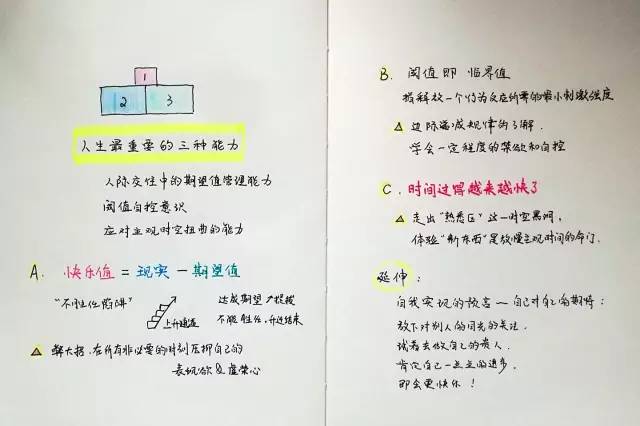 1
2
3
人生最重要的三种能力
人际交往中的期望值管理能力
阈值自控意识
应对主观时空扭曲的能力
A. 快乐值 = 现实 - 期望值
"不胜任陷阱"
上升通道
达成期望→提拔
不能胜任,升迁结束
△ 解大招:在所有非必要的时刻压抑自己的
表现欲&虚荣心
B. 阈值即 临界值
指释放一个行为反应所需的最小刺激强度
△ 边际递减规律的了解.
学会一定程度的禁欲和自控
C. 时间过得越来越快了
△ 走出"熟悉区"这一时空黑洞,
体验"新东西"是放慢主观时间的命门.
延伸:
自我实现的预言—自己对自己的期待:
放下对别人的目光的关注.
试着去做自己的贵人.
肯定自己一点点的进步.
即会更快乐!